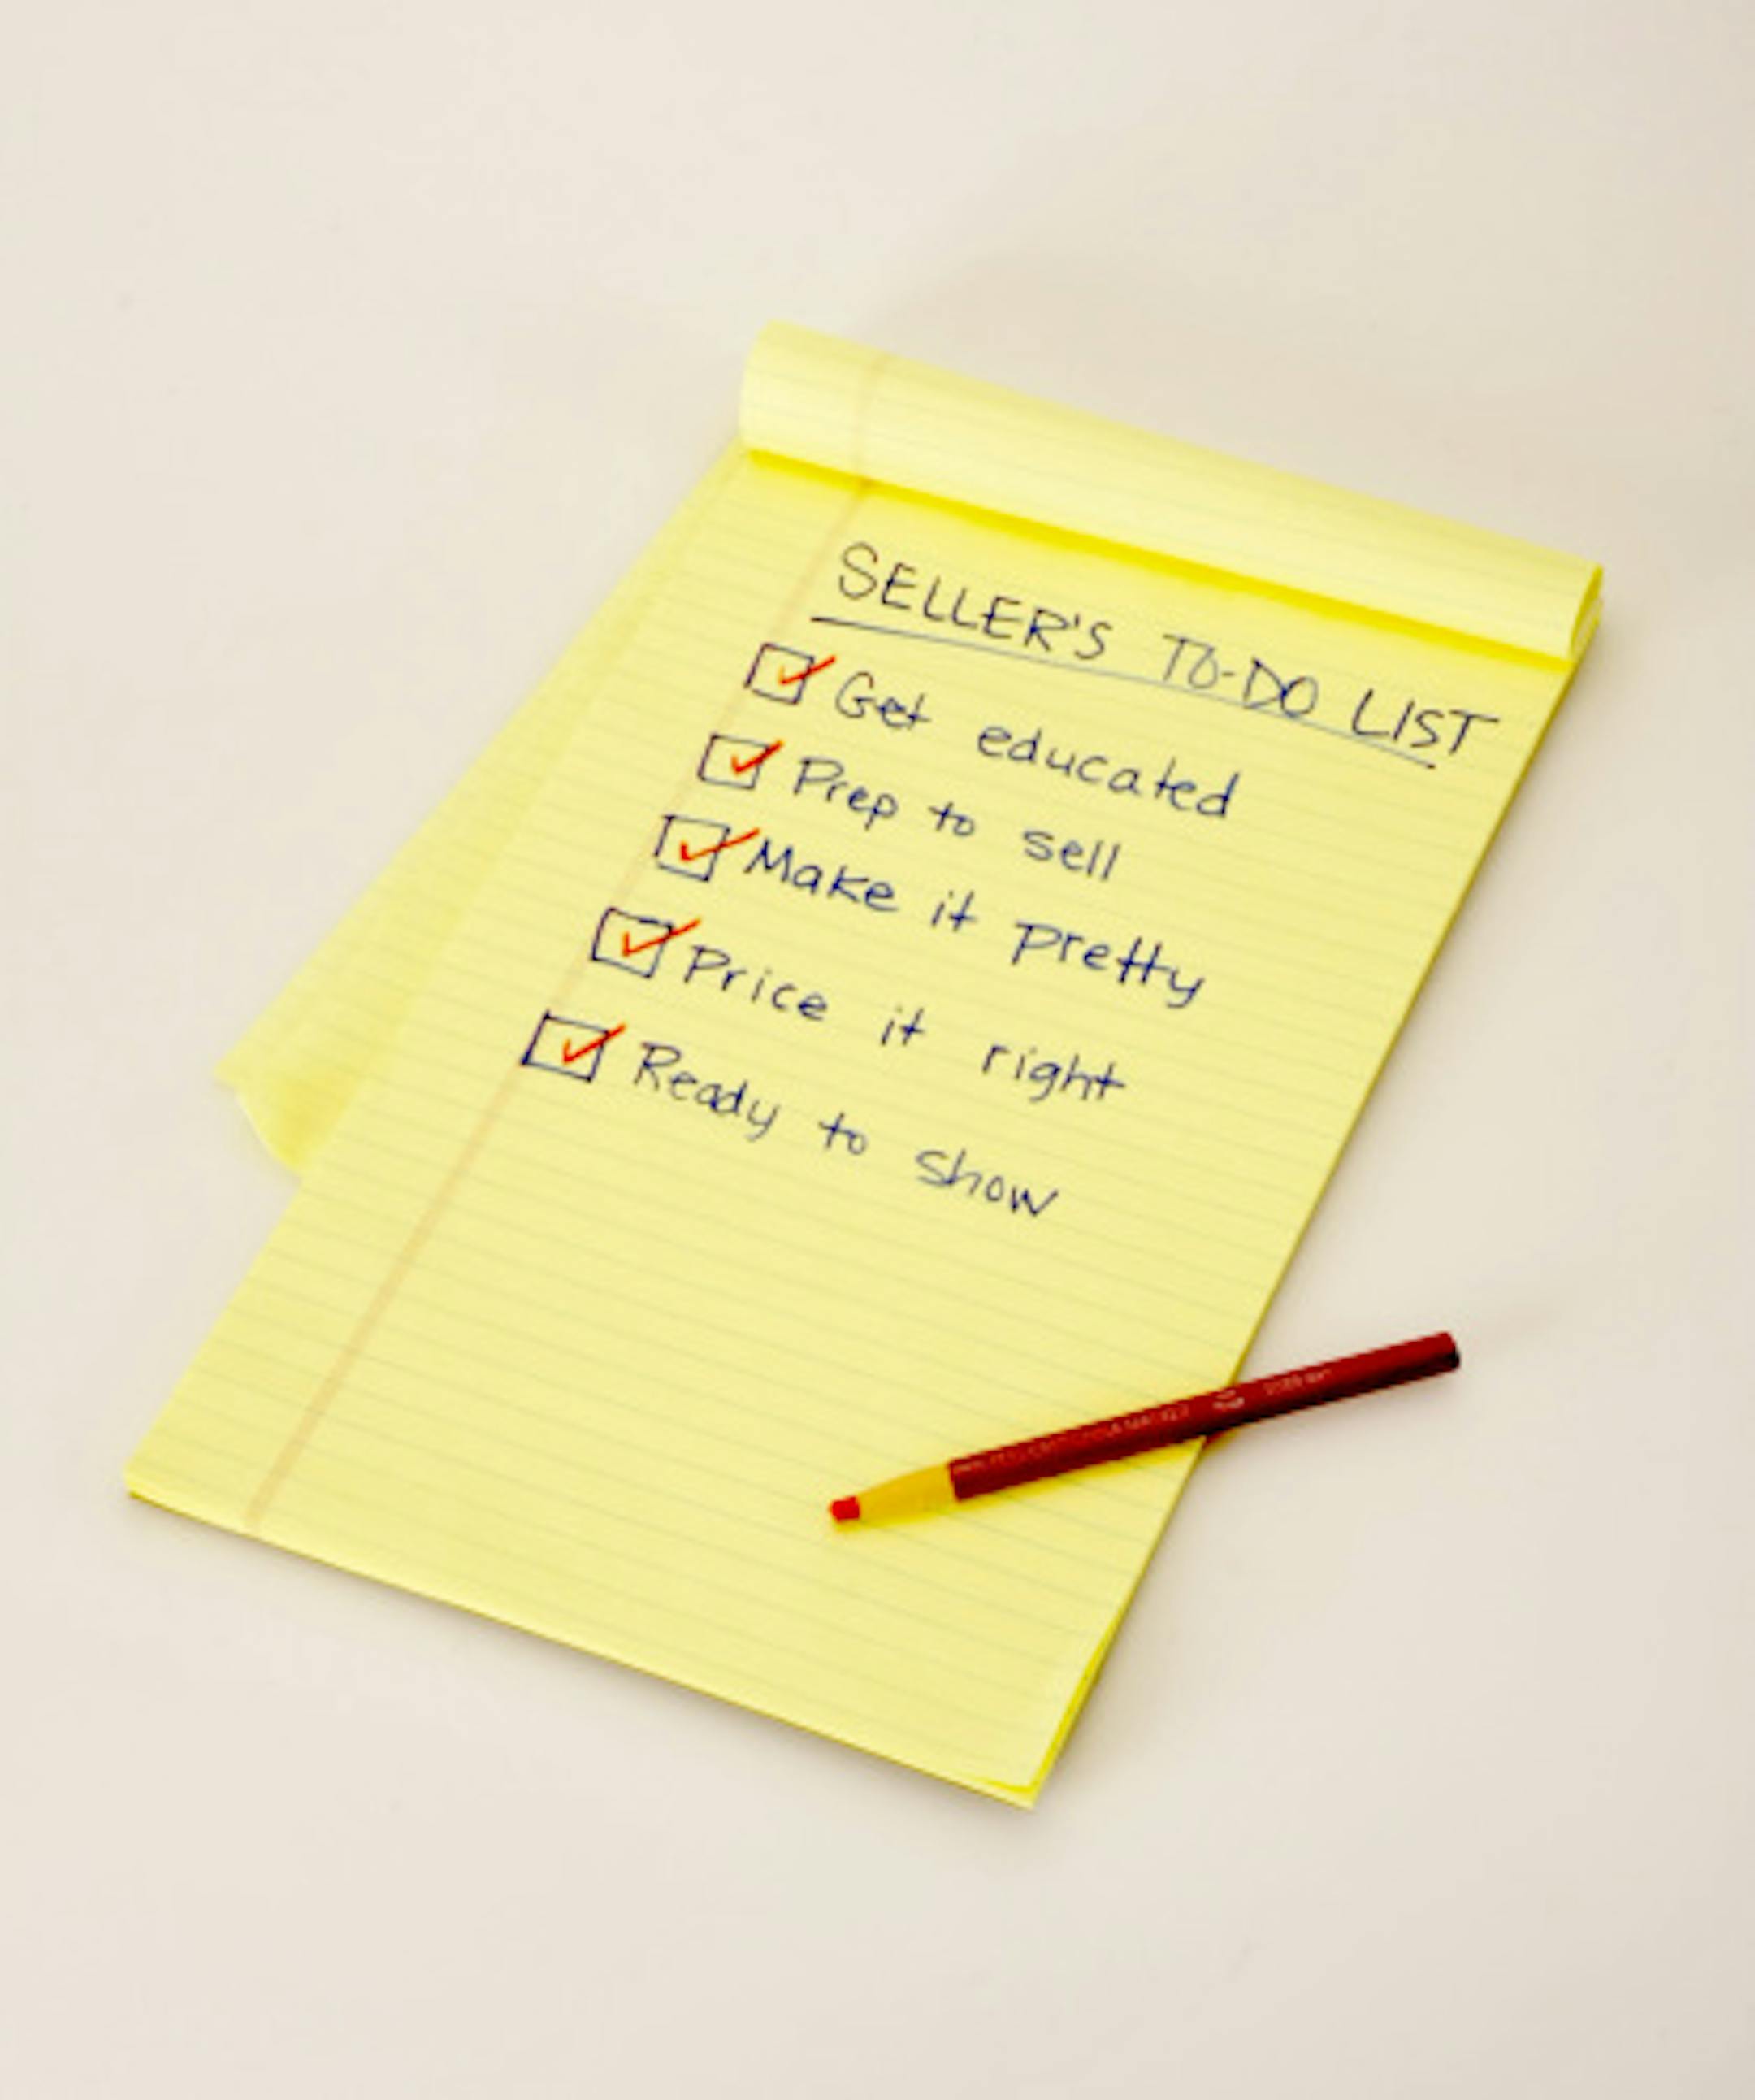 SELLER'S TO-DO LIST
Get educated
Prep to sell
Make it pretty
Price it right
Ready to show